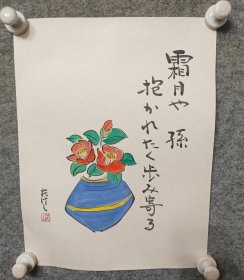 霜月や 孫
抱かれたく歩み寄る
たけし